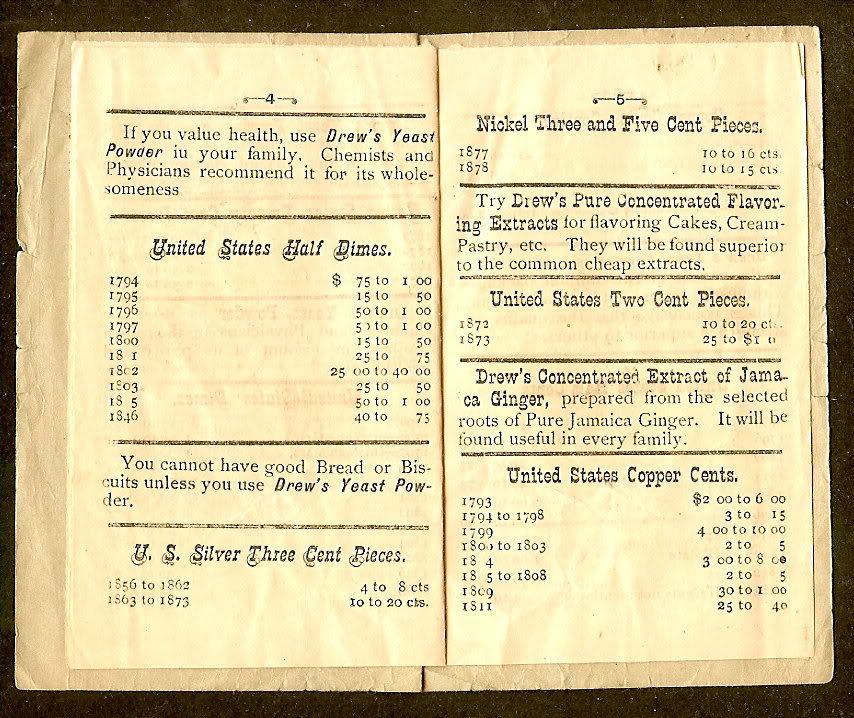 4
If you value health, use Drew's Yeast
Powder iu your family. Chemists and
Physicians recommend it for its whole-
someness
United States Half Dimes.
1794 $ 75 to 1 00
1795 15 to 50
1796 50 to 1 00
1797 5 to 1 00
1800 15 to 50
18 1 25 to 75
1802 25 00 to 40 00
1803 25 to 50
18 5 50 to 1 00
1846 40 to 75
You cannot have good Bread or Bis-
cuits unless you use Drew's Yeast Pow-
der.
U. S. Silver Three Cent Pieces.
1856 to 1862 4 to 8 cts
1863 to 1873 10 to 20 cts.
5
Nickel Three and Five Cent Pieces.
1877 10 to 16 cts.
1878 10 to 15 cts
Try Drew's Pure Concentrated Flavor-
ing Extracts for flavoring Cakes, Cream-
Pastry, etc. They will be found superior
to the common cheap extracts.
United States Two Cent Pieces.
1872 10 to 20 ct.
1873 25 to $1 0
Drew's Concentrated Extract of Jama-
ca Ginger, prepared from the selected
roots of Pure Jamaica Ginger. It will be
found useful in every family.
United States Copper Cents.
1793 $2 00 to 6 00
1794 to 1798 3 to 15
1799 4 00 to 10 00
1800 to 1803 2 to 5
18 4 3 00 to 8 00
18 5 to 1808 2 to 5
1809 30 to 1 00
1811 25 to 40